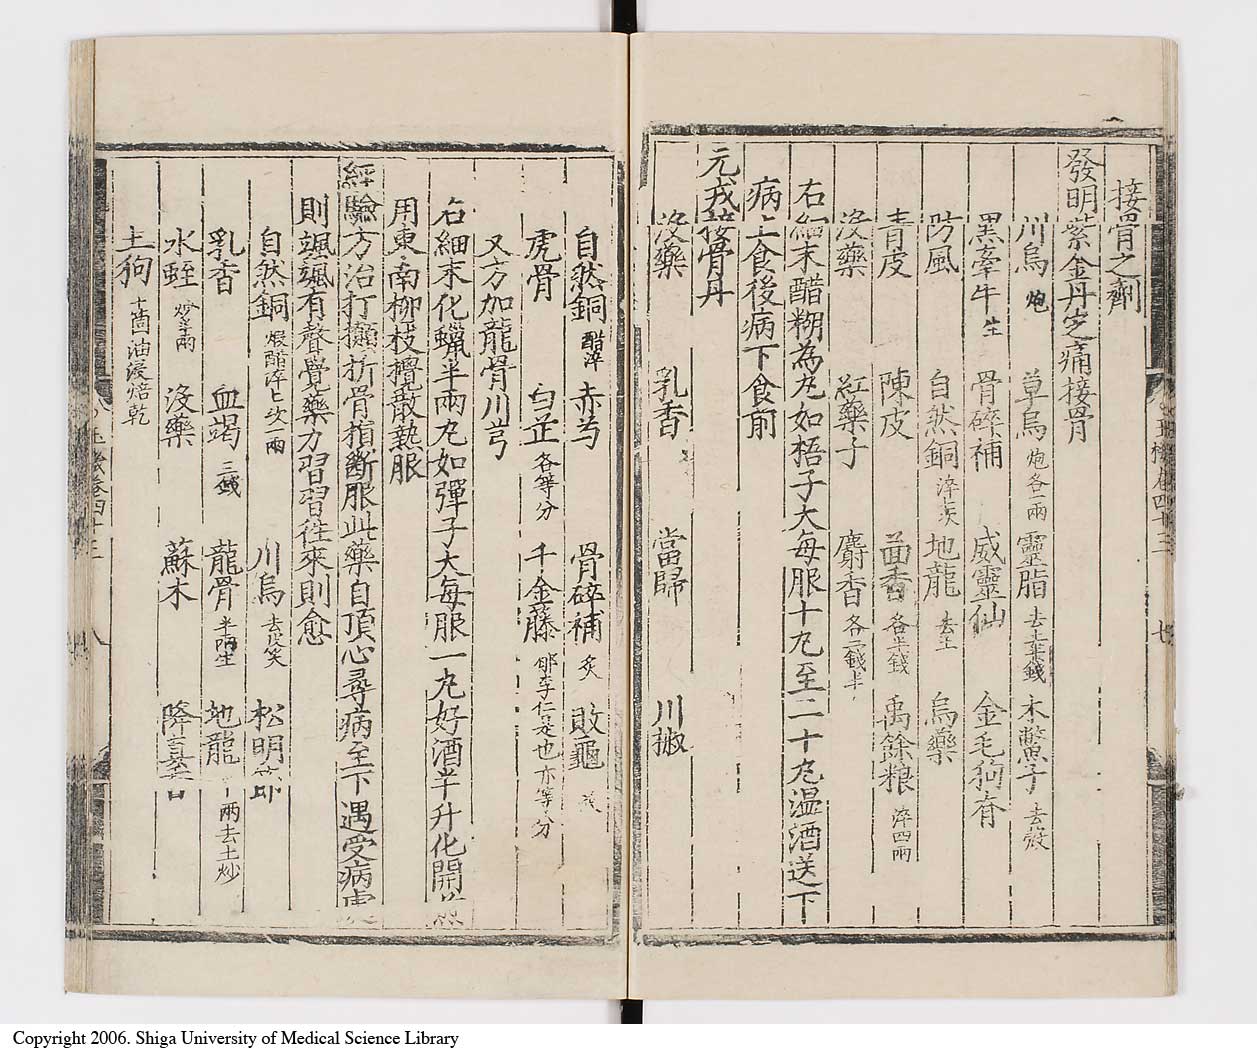 接骨之劑
發明紫金丹定痛接骨
川烏 炮 草烏 炮各一兩 靈脂 去土半錢 木鱉子 去殻
黑牽牛 生 骨碎補 威靈仙 金毛狗脊
防風 自然銅 淬七次 地龍 去土 烏藥
青皮 陳皮 茴香 各半錢 禹餘粮 淬四兩
没藥 紅藥子 麝香 各一錢半
右細末醋糊為丸如梧子大每服十丸至二十丸温酒送下
病上食後病下食前
元戎接骨丹
没藥 乳香 當歸 川椒
自然銅 醋淬 赤芍 骨碎補 炙 敗龜 炙
虎骨 白芷 各等分 千金藤 郁李仁是也亦等分
又方加龍骨川芎
右細末化蠟半兩丸如彈子大每服一丸好酒半升化開
用東南柳枝攪散熱服
經驗方治打攧折骨損斷服此藥自頂心尋病至下遇受病處
則颯颯有聲覺藥力習習往來則愈
自然銅 煆醋淬七次一兩 川烏 去皮尖 松明節
乳香 血竭 三錢 龍骨 半兩生 地龍 一兩去土炒
水蛭 炒 半兩 没藥 蘇木 降真香
土狗 十箇油浸焙乾
Copyright 2006. Shiga University of Medical Science Library